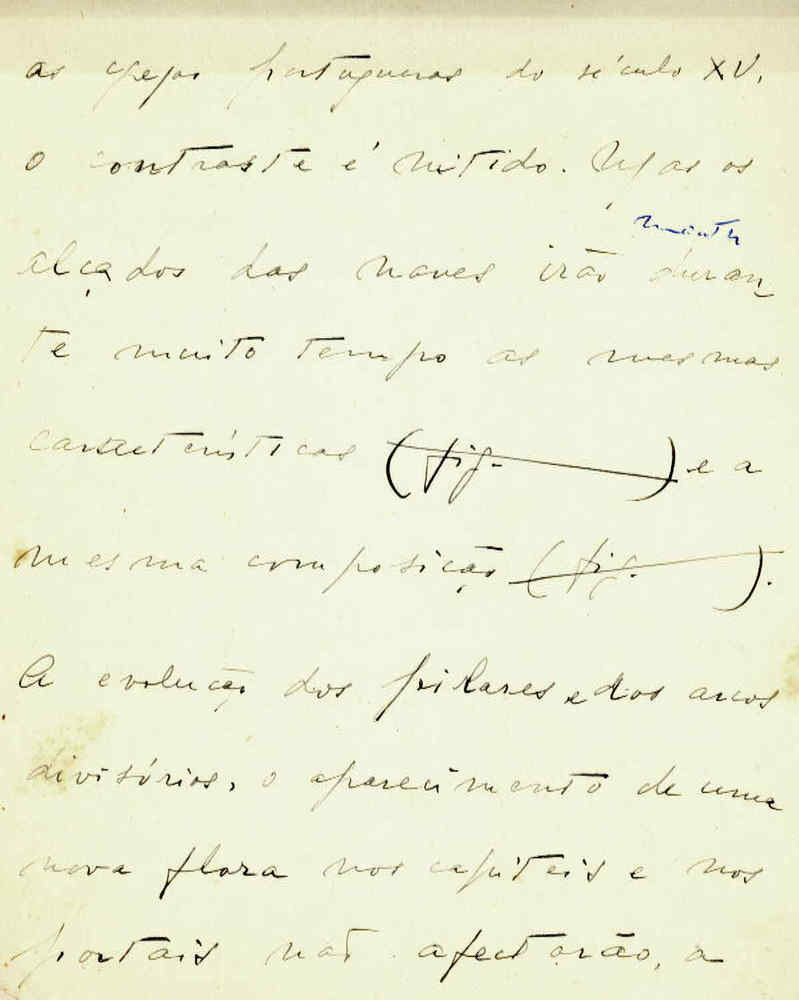 as igrejas portuguesas do século XV,
o contraste é nítido. Mas os
manter
alçados das naves irão duran
te muito tempo as mesmas
características (fig. ) e a
mesma composição (fig. ).
A evolução dos pilares e dos arcos
divisórios, o aparecimento de uma
nova flora nos capiteis e nos
portais não afectarão, a